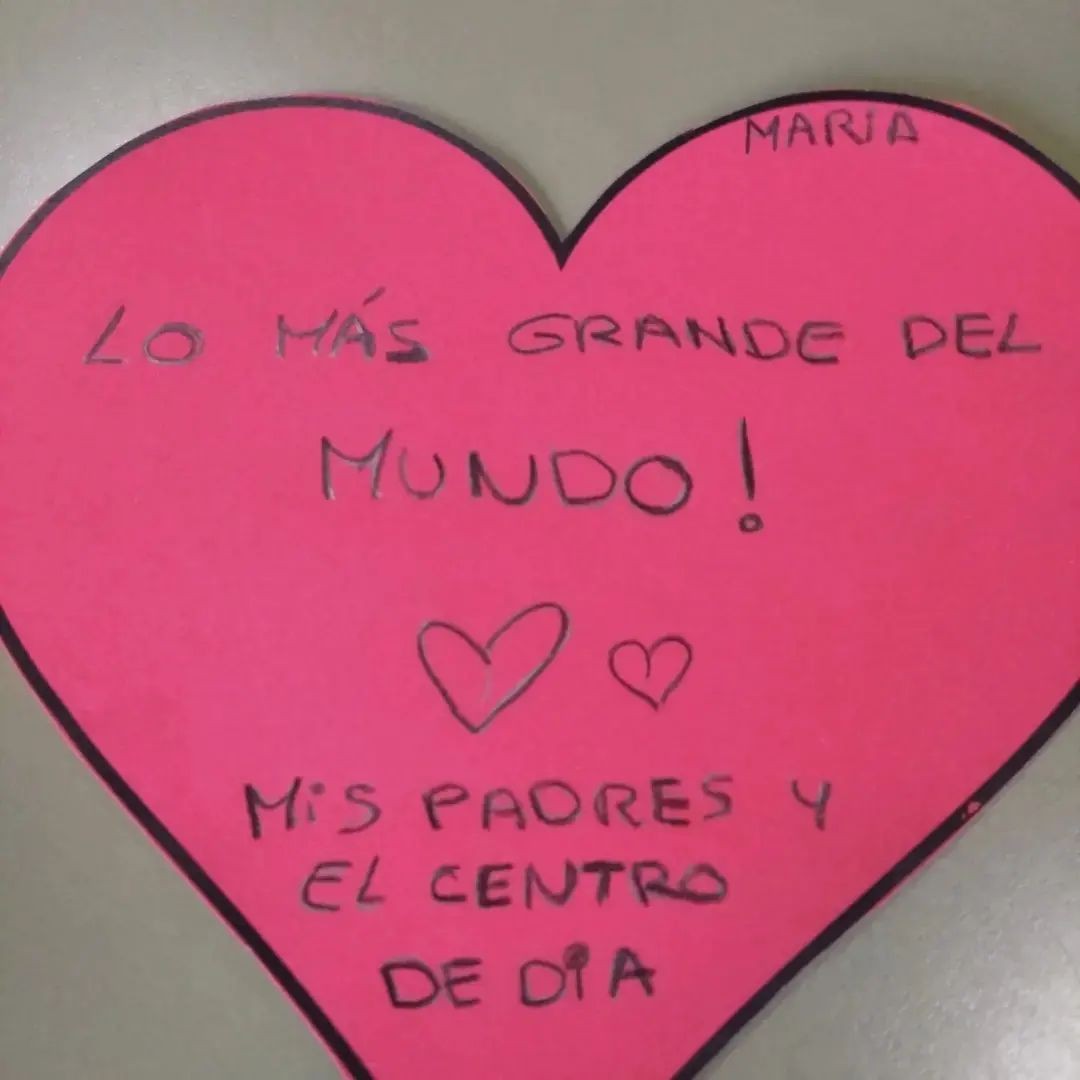 MARIA
LO MÁS GRANDE DEL
MUNDO!
MiS PADRES Y
EL CENTRO
DE DiA